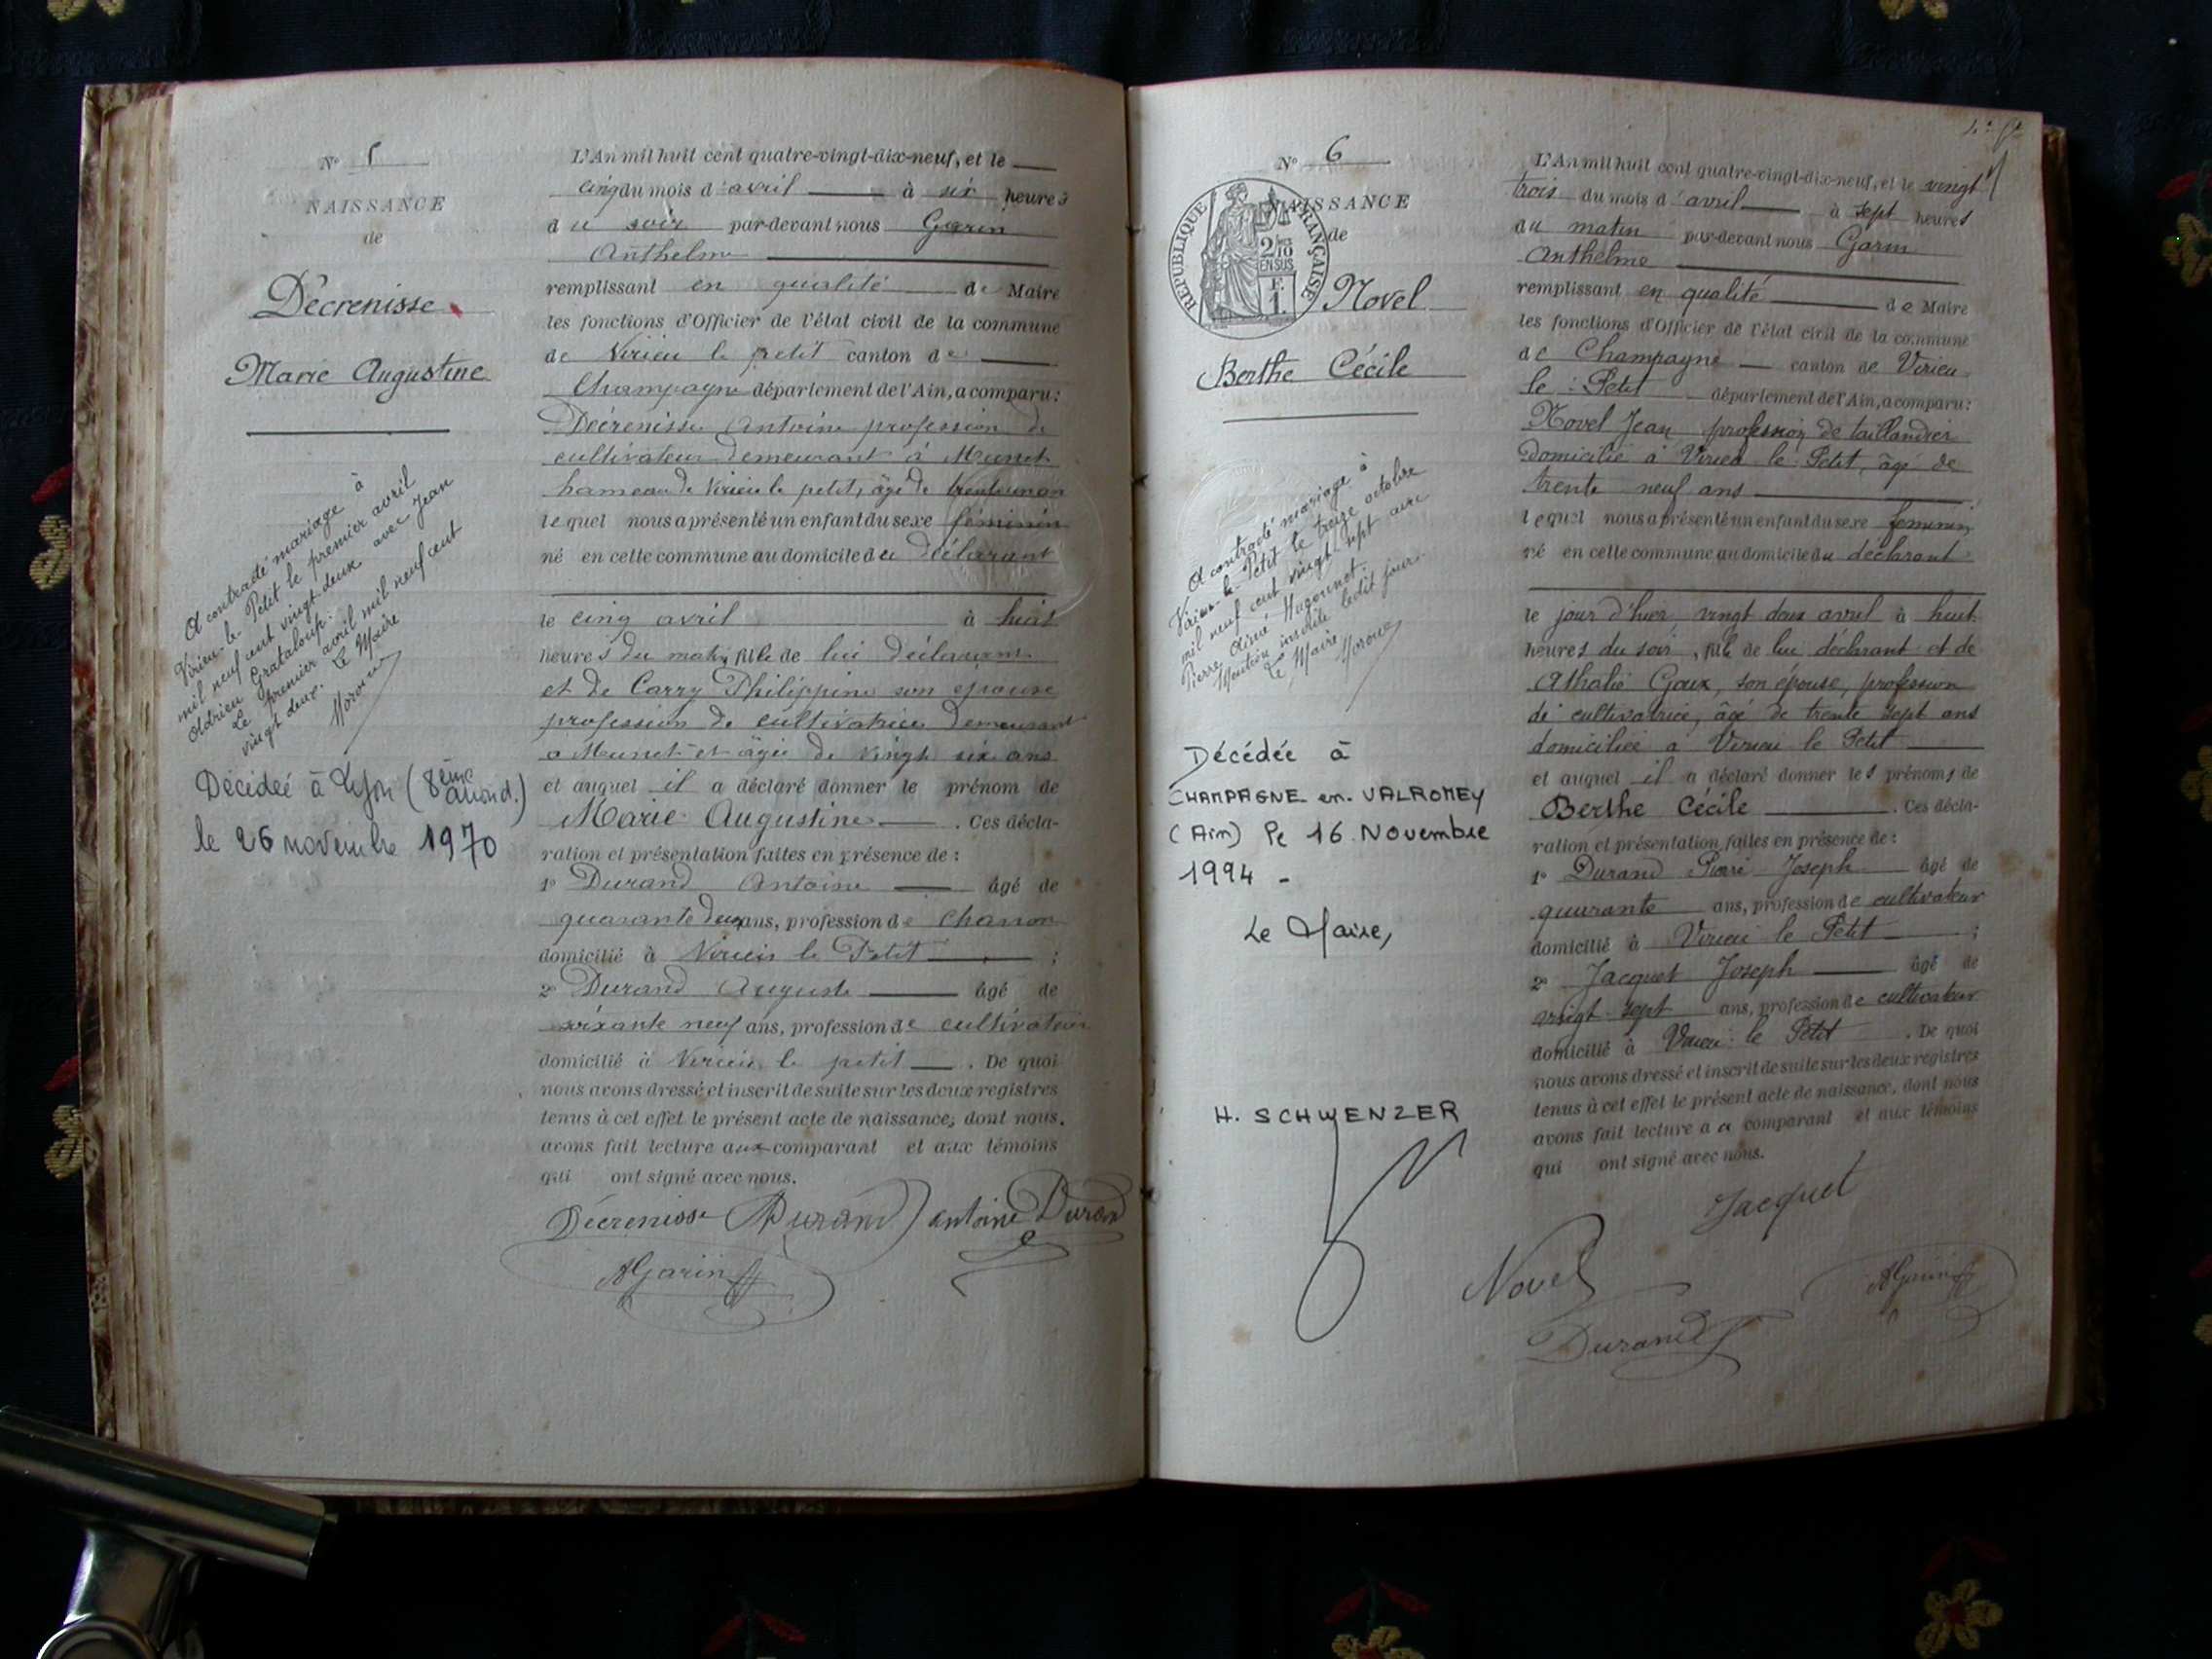 N° 5
NAISSANCE
de
Décrenisse
Marie Augustine
A contracté mariage à
Virieu-le-Petit le premier avril
mil neuf cent vingt-deux avec Jean
Adrien Grataloup.
Le premier avril mil neuf cent
vingt deux. Le Maire
Décédée à Lyon (8ème arrond.)
le 26 novembre 1970
L'An mil huit cent quatre-vingt-dix-neuf, et le
cinq du mois d'avril à six heures
du soir par-devant nous Garin
Anthelme
remplissant en qualité de Maire
les fonctions d'Officier de l'état civil de la commune
de Virieu le petit canton de
Champagne département de l'Ain, a comparu:
Décrenisse Antoine profession de
cultivateur demeurant à Munet
hameau de Virieu le petit, âgé de
lequel nous a présenté un enfant du sexe féminin
né en cette commune au domicile du déclarant
le cinq avril à huit
heures du matin, fille de lui déclarant
et de Carry Philippine son épouse
profession de cultivatrice demeurant
a Munet et âgée de vingt six ans
et auquel il a déclaré donner le prénom de
Marie Augustine. Ces décla-
ration et présentation faites en présence de :
1° Durand Antoine âgé de
quarante deux ans, profession de charron
domicilié à Virieu le Petit ;
2° Durand Auguste âgé de
soixante neuf ans, profession de cultivateur
domicilié à Virieu le petit. De quoi
nous avons dressé et inscrit de suite sur les deux registres
tenus à cet effet le présent acte de naissance, dont nous
avons fait lecture aux comparant et aux témoins
qui ont signé avec nous.
Décrenisse Durand antoine Durand
AGarin
N° 6
NAISSANCE
de
RÉPUBLIQUE FRANÇAISE
2/10
EN SUS
F.
1.
Novel
Berthe Cécile
A contracté mariage à
Virieu-le-Petit le treize octobre
mil neuf cent vingt-sept avec
Pierre Aimé Hugonnet.
Mention inscrite ledit jour.
Le Maire
Décédée à
CHAMPAGNE en VALROMEY
(Ain) le 16 Novembre
1994 -
Le Maire,
H. SCHWENZER
L'An mil huit cent quatre-vingt-dix-neuf, et le vingt
trois du mois d'avril à sept heures
du matin par-devant nous Garin
Anthelme
remplissant en qualité de Maire
les fonctions d'Officier de l'état civil de la commune
de Champagne canton de Virieu
le Petit département de l'Ain, a comparu:
Novel Jean profession de taillandier
domicilié à Virieu le Petit, âgé de
trente neuf ans
lequel nous a présenté un enfant du sexe feminin
né en cette commune au domicile du déclarant
le jour d'hier vingt deux avril à huit
heures du soir, fille de lui déclarant et de
Athalie Goux, son épouse, profession
de cultivatrice, âgé de trente sept ans
domiciliée a Virieu le Petit
et auquel il a déclaré donner les prénoms de
Berthe Cécile. Ces décla-
ration et présentation faites en présence de :
1° Durand Pierre Joseph âgé de
quarante ans, profession de cultivateur
domicilié à Virieu le Petit ;
2° Jacquet Joseph âgé de
vingt-sept ans, profession de cultivateur
domicilié à Virieu le Petit. De quoi
nous avons dressé et inscrit de suite sur les deux registres
tenus à cet effet le présent acte de naissance, dont nous
avons fait lecture au comparant et aux témoins
qui ont signé avec nous.
Jacquet
Novel
AGarin
Durand